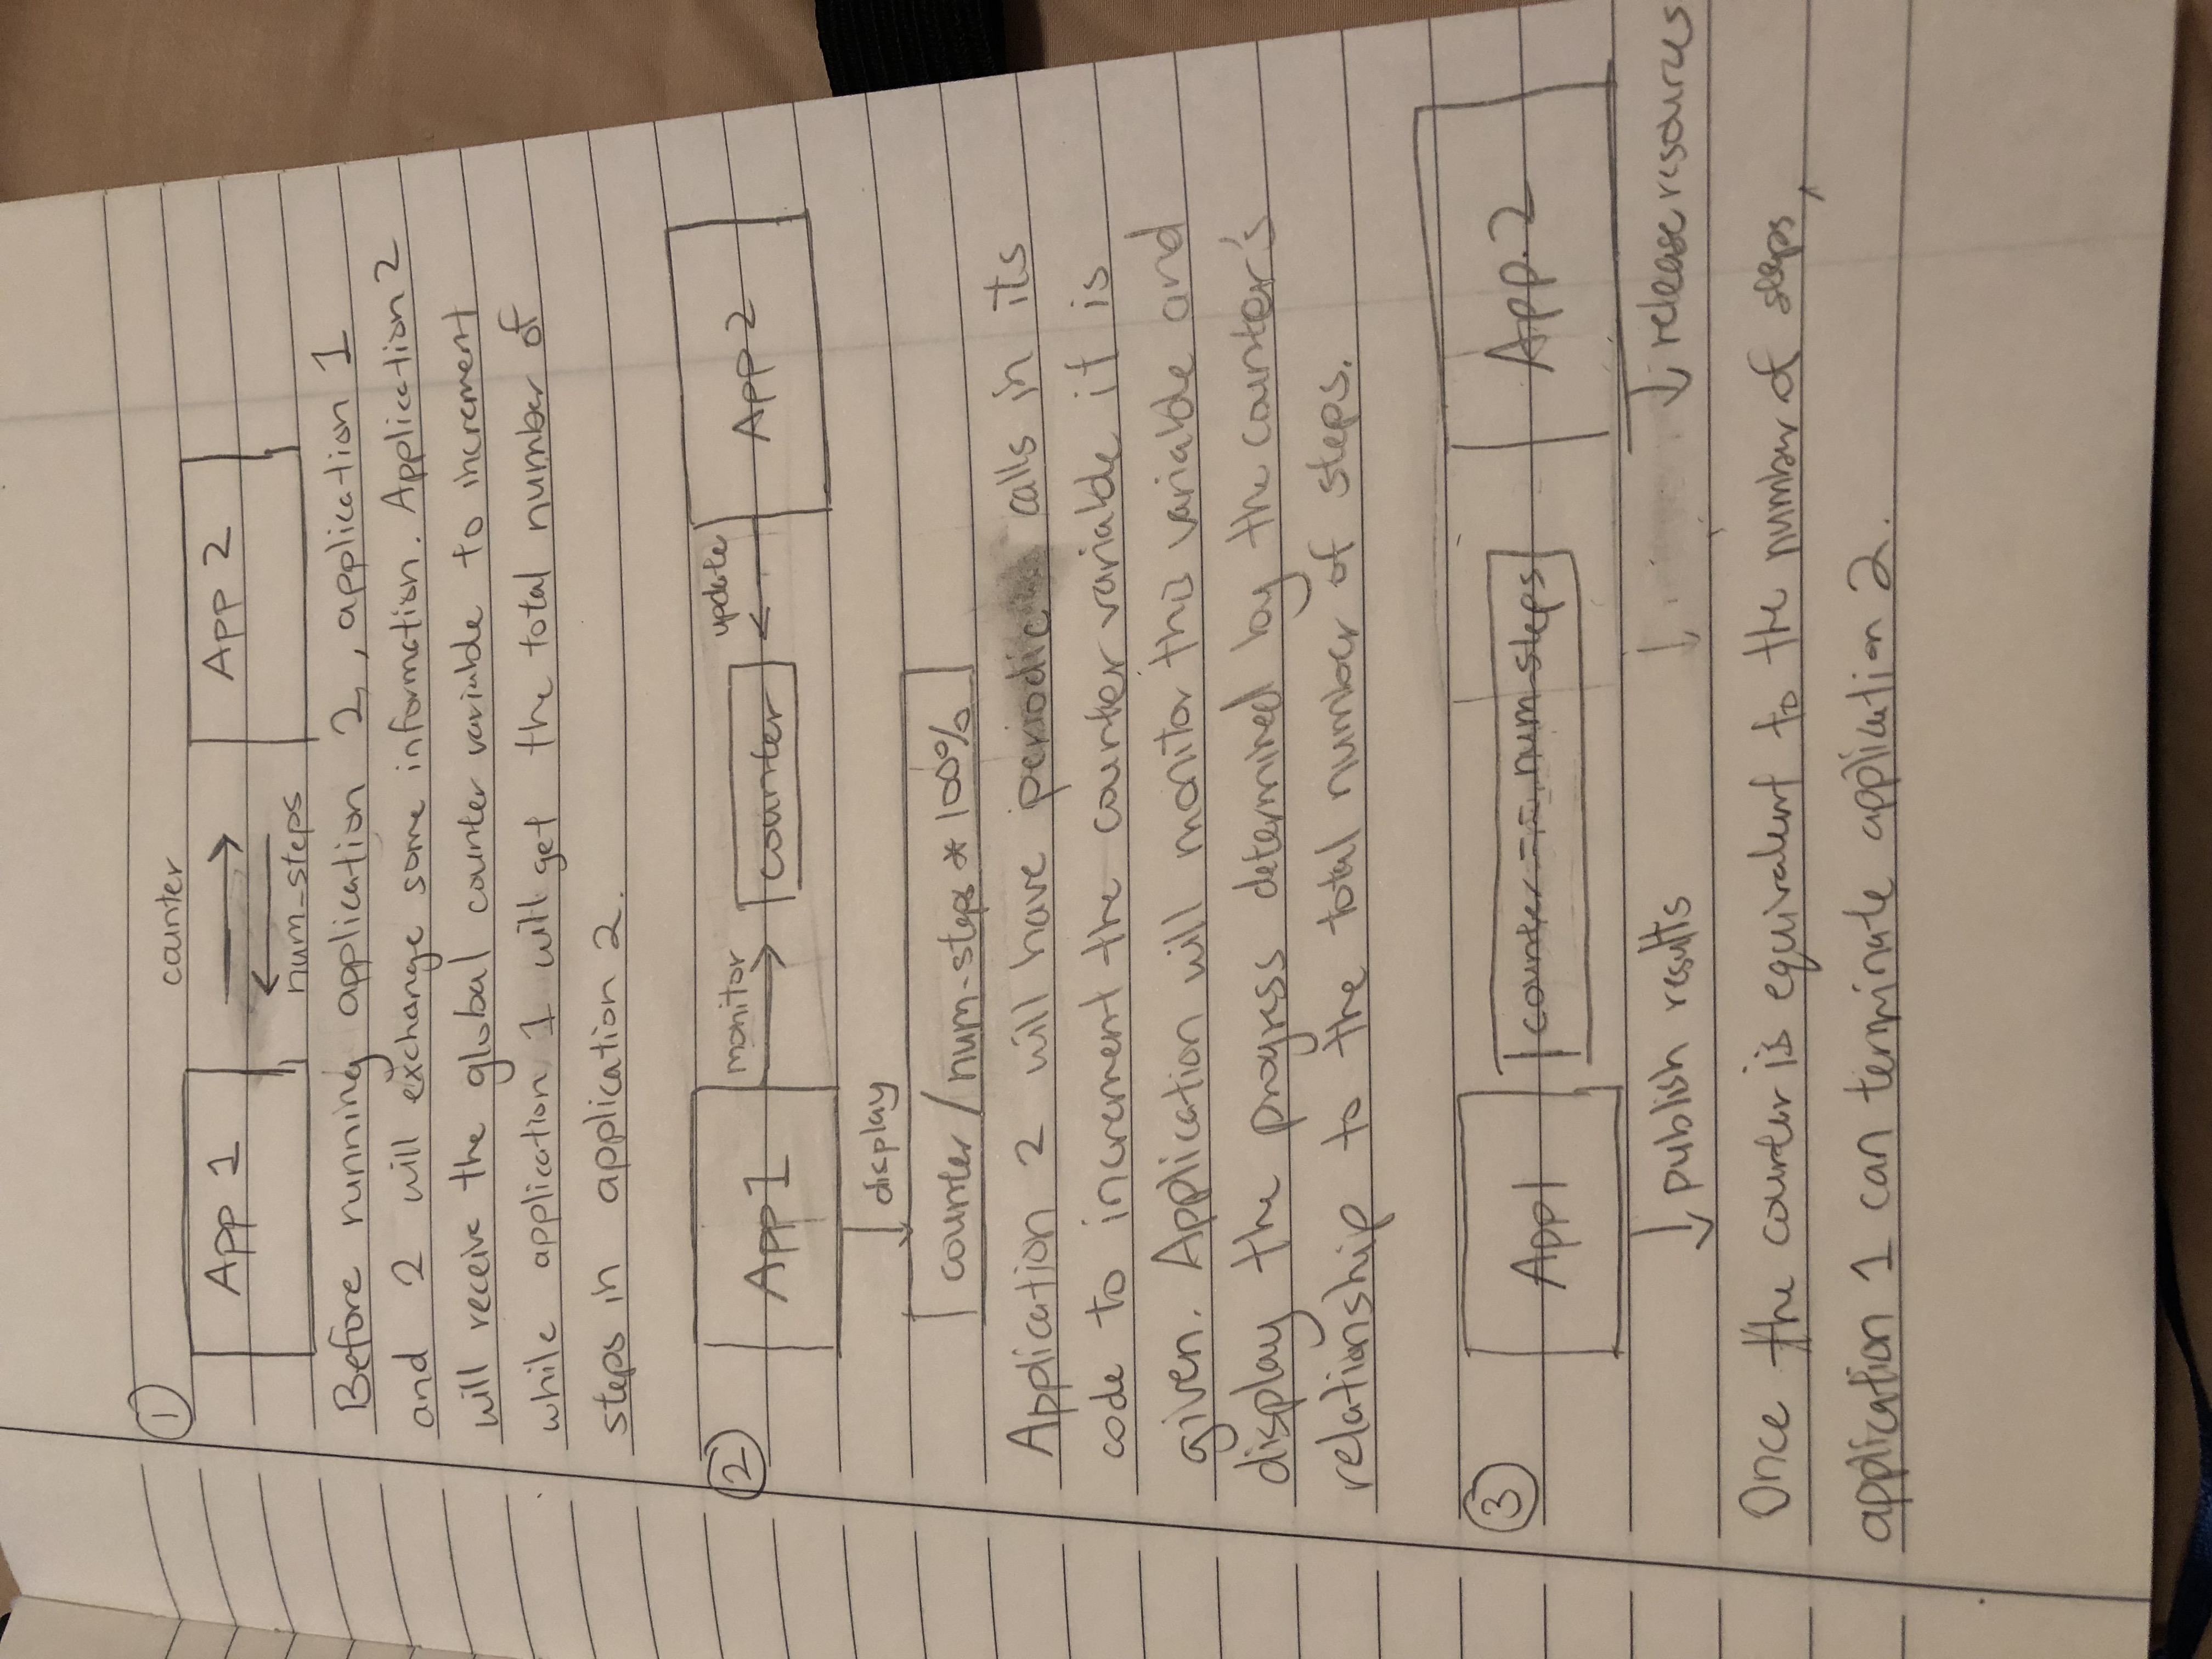 ①
counter
App 1
App 2
num-steps
Before running application 2, application 1
and 2 will exchange some information. Application 2
will receive the global counter variable to increment
while application 1 will get the total number of
steps in application 2.
②
App 1
monitor
counter
update
App 2
display
counter / num-steps * 100%
Application 2 will have periodic calls in its
code to increment the counter variable it is
given. Application will monitor this variable and
display the progress determined by the counter's
relationship to the total number of steps.
③
App 1
counter == num-steps
App 2
publish results
release resources
Once the counter is equivalent to the number of steps,
application 1 can terminate application 2.